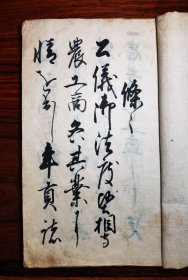 條々
公儀御法度堅相守
農工商各其業を
情を出し年貢諸